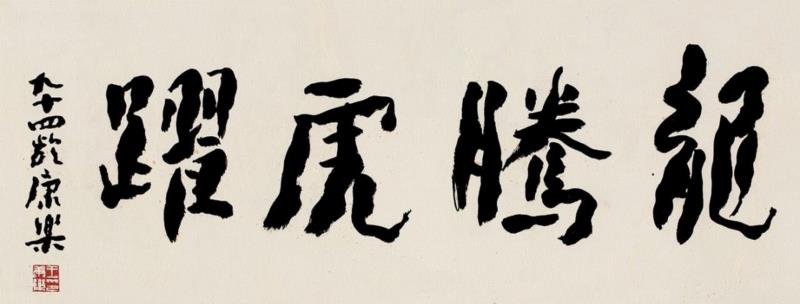 龍騰虎躍
九十四龄康樂